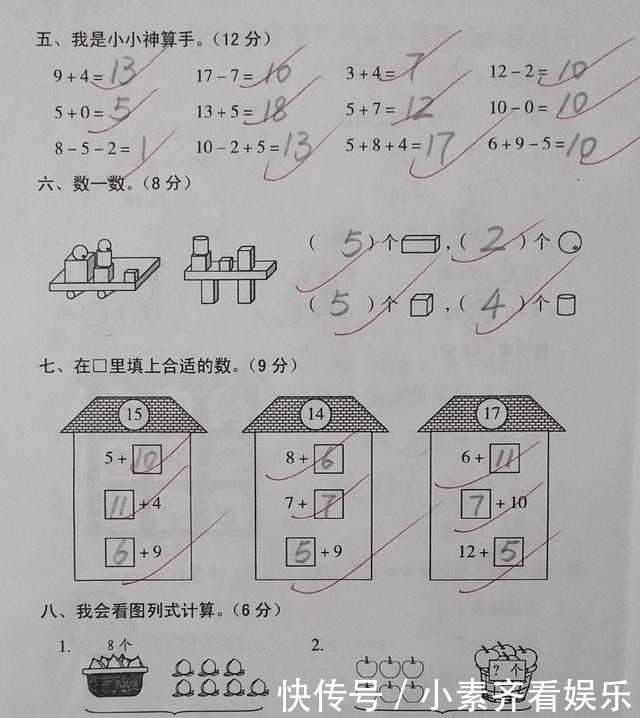 五、我是小小神算手。(12分)
9+4=13 17-7=10 3+4=7 12-2=10
5+0=5 13+5=18 5+7=12 10-0=10
8-5-2=1 10-2+5=13 5+8+4=17 6+9-5=10
六、数一数。(8分)
(5)个 ,(2)个
(5)个 ,(4)个
七、在□里填上合适的数。(9分)
15 14 17
5+10 8+6 6+11
11+4 7+7 7+10
6+9 5+9 12+5
八、我会看图列式计算。(6分)
1. 8个 2. ?个
快传号/小素齐看娱乐